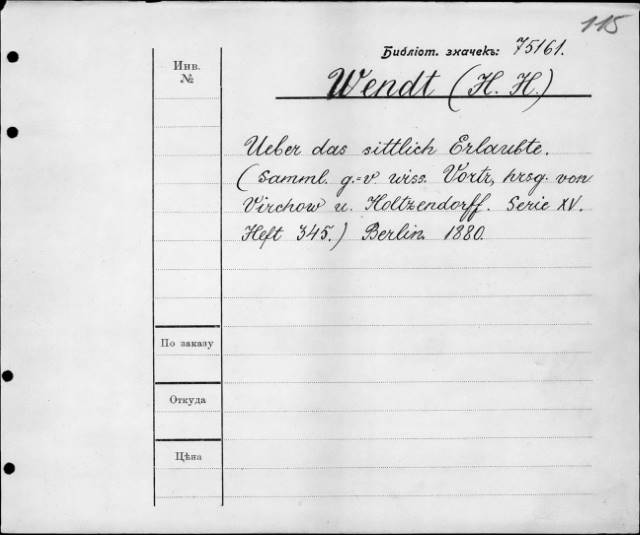 115
Библіот. значекъ: 75161.
Инв.
№
Wendt (H. H.)
Ueber das sittlich Erlaubte.
(Samml. g.=v. wiss. Vortr., hrsg. von
Virchow u. Holtzendorff. Serie XV.
Heft 345.) Berlin. 1880.
По заказу
Откуда
Цѣна